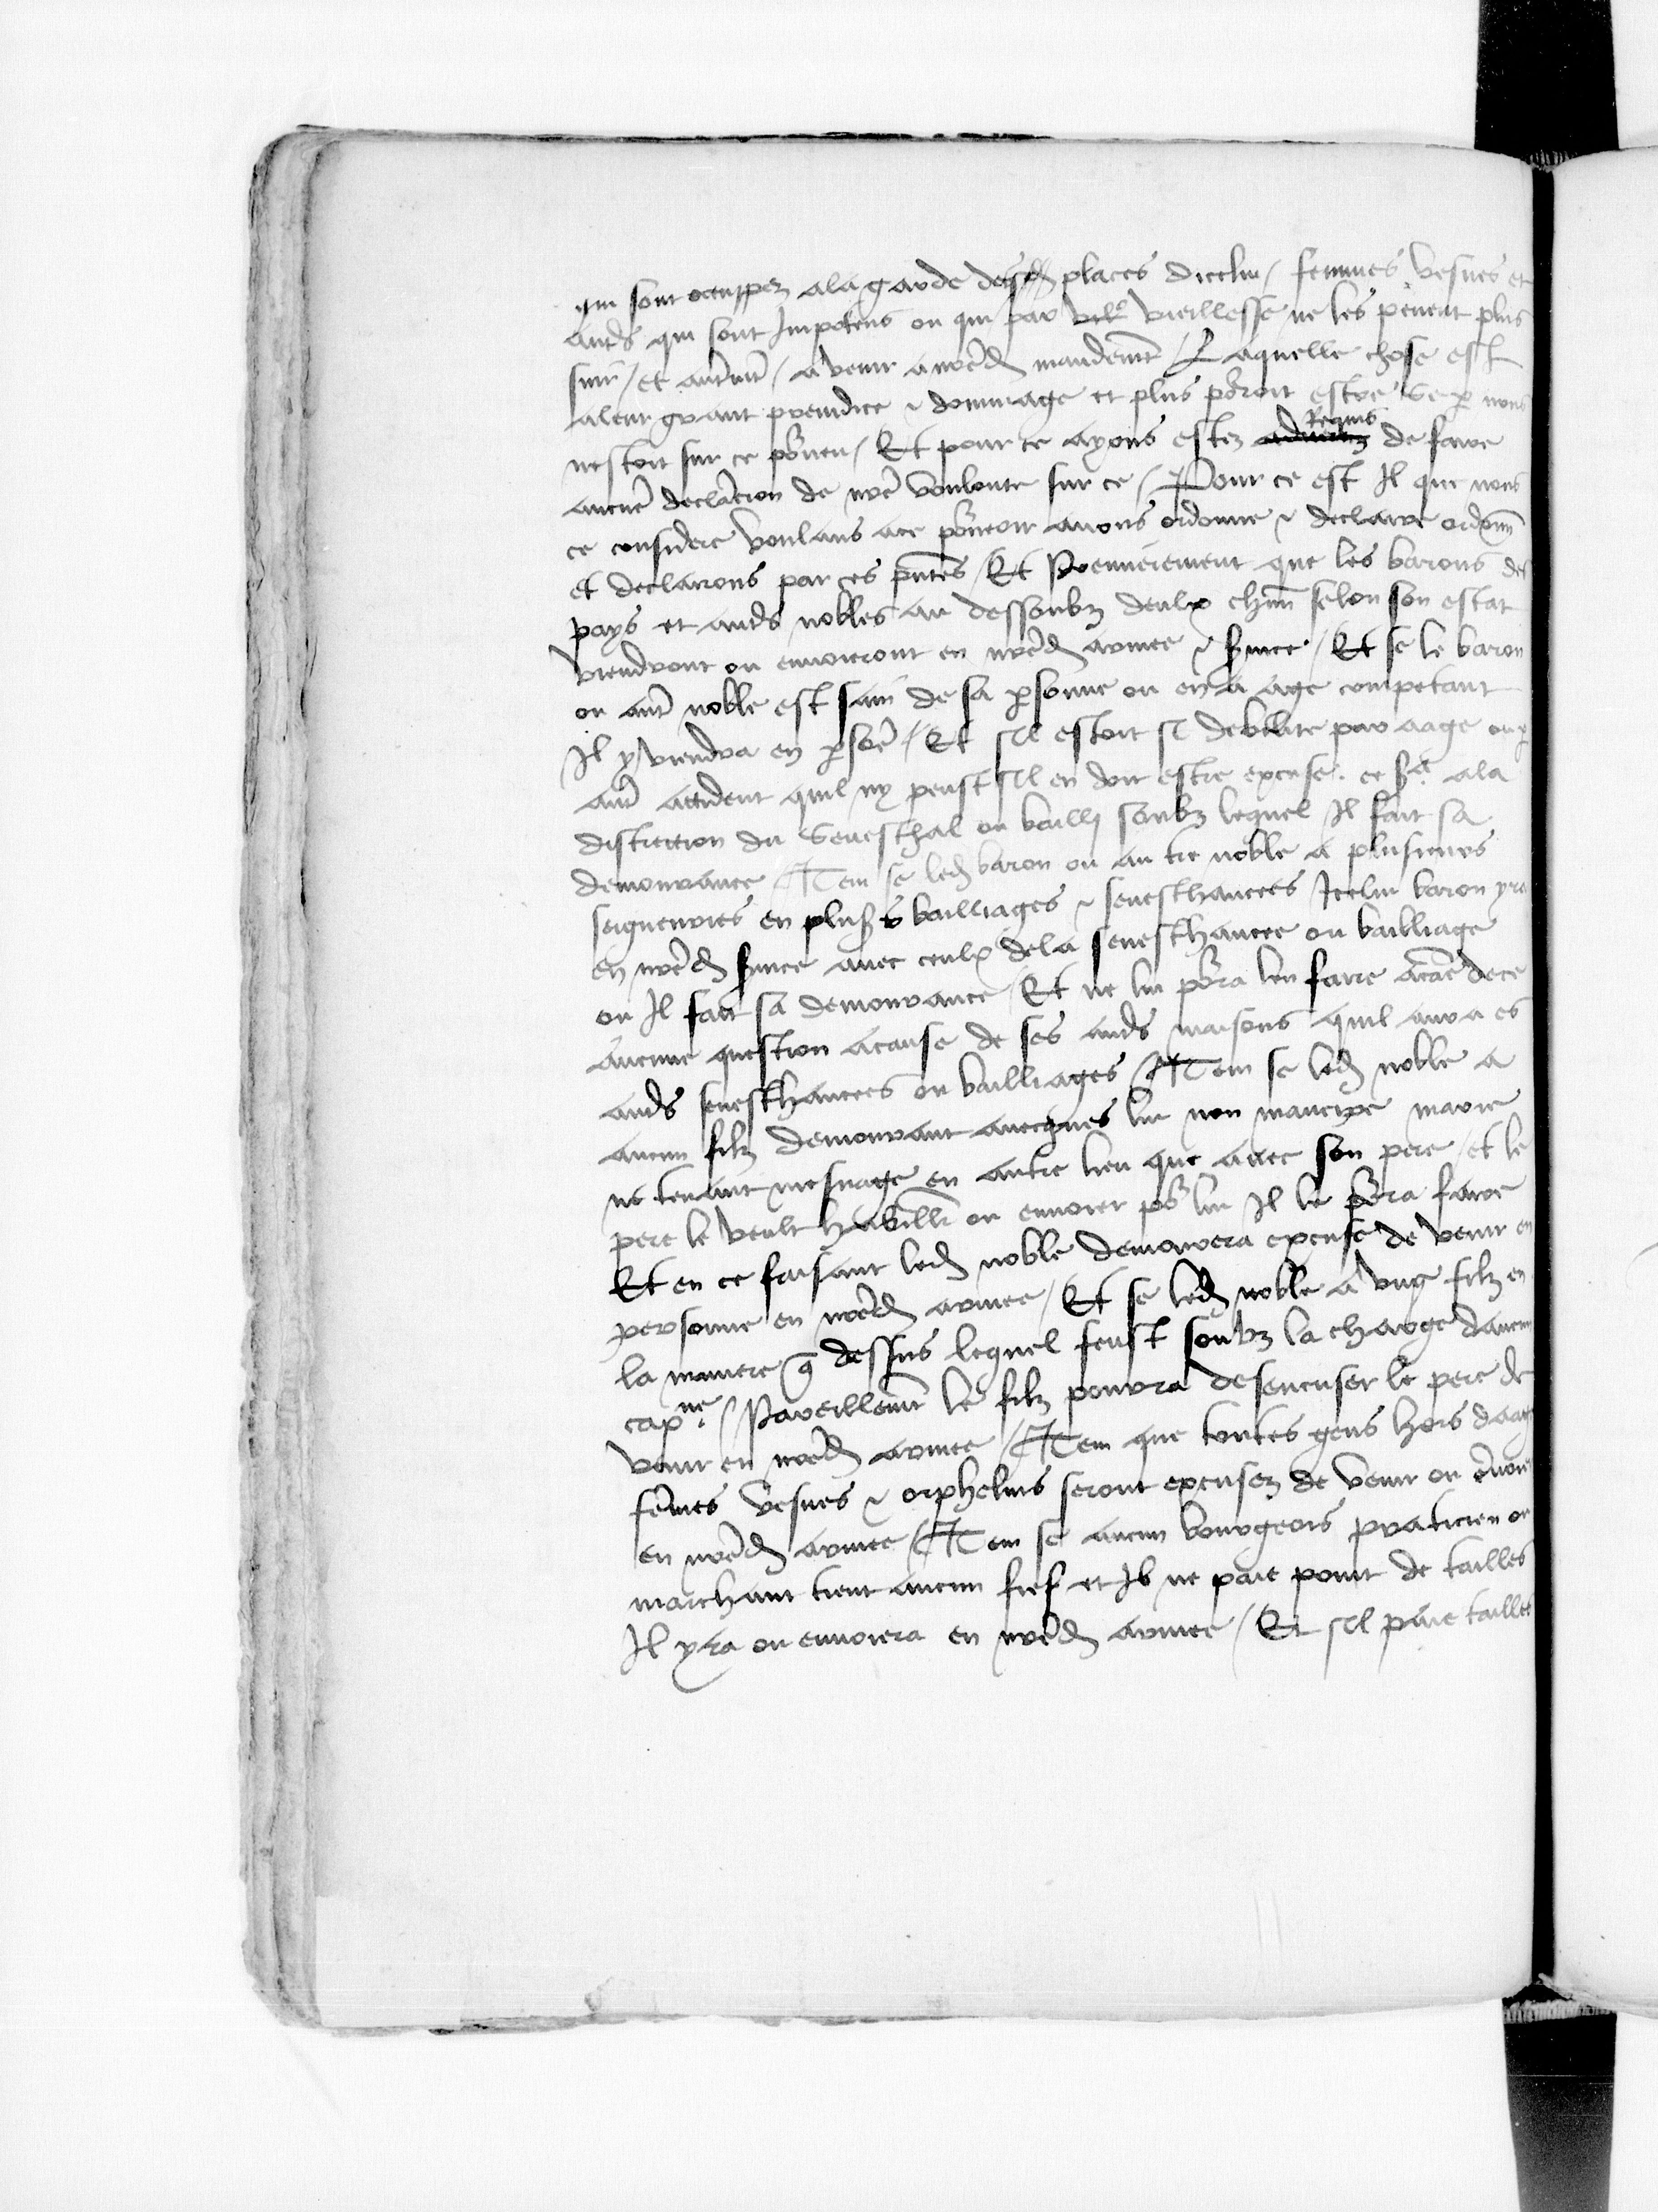 qui sont occuppez ala garde desd places dicelui / femmes vesves et
aut's qui sont Impotens ou qui par vielle vieillesse ne les peuent plus
suir / et aut'mt / a venir a n're d mandemt / Laquelle chose est
aleur grant preiudice & dommage et plus po'roit estre se p nous
nestoit sur ce po'veu / Et pour ce ayons estez Requis de faire
aucune declaracion de n're voulente sur ce / Pour ce est Il que nous
ce considere voulans ace po'veoir avons ordonne & declaire ordonn
et declairons par ces p'ntes / Et Premierement que les barons des
pays et aut's nobles au dessoubz deulx ch'un selon son estat
viendront ou envoieront en n're d armee & s'vice / Et se le baron
ou aut' noble est sain de sa p'sonne ou en a age competant
Il y viendra en p'sone / Et sil estoit si debilite par aage ou p
aut' accident quil ny peust Il en doit estre excuse . ala
discrection du Seneschal ou bailli soubz lequel Il fait sa
demourance / Item se led baron ou autre noble a plusieurs
seigneuries en plus's bailliages & seneschaucees Icelui baron yra
en n're d s'vice avec ceulx dela seneschaucee ou bailliage
ou Il fait sa demourance / Et ne lui po'ra len faire a cause dece
aucune question acause de ses aut's maisons quil aura es
aut's seneschaucees ou bailliages / Item se led noble a
aucun filz demourant avecques lui non mancipe marie
ne tenant mesnage en autre lieu que avec son pere / et le
pere le veult habiller ou envoier po' lui Il le po'ra faire
Et en ce faisant led noble demourera excuse de venir en
personne en n're d armee / Et se led noble a ung filz en
la maniere q dessus lequel feust soubz la charge daucun
capne / Pareillemt le filz pourra desencuser le pere de
venir en n're d armee / Item que toutes gens hors daage
femes vesves & orphelins seront excusez de venir ou envoie
en n're d armee / Item se aucun bourgeois praticien ou
marchant tient aucun fief et Il ne paie point de tailles
Il yra ou envoiera en n're d armee / Et sil paie tailles